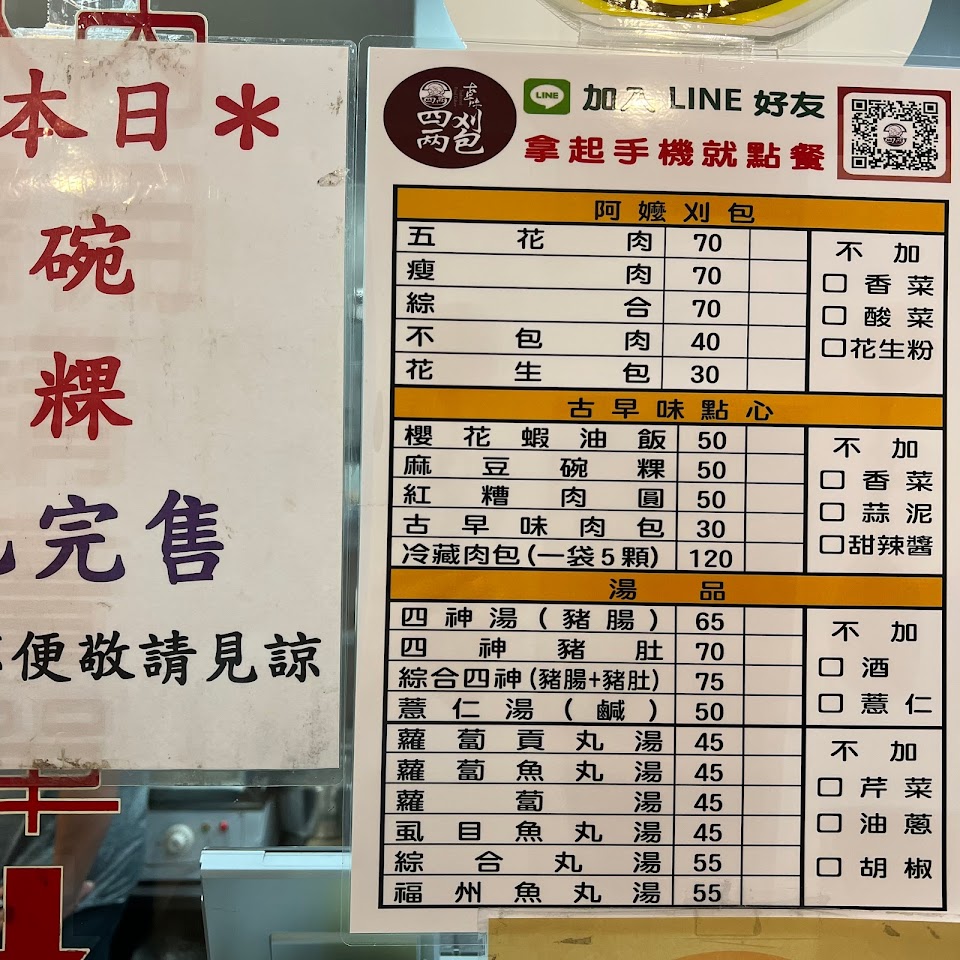 本日*
碗
粿
完售
便敬請見諒
四兩
刈包
LINE
加入 LINE 好友
拿起手機就點餐
阿嬤刈包
五花肉 70
瘦肉 70
綜合 70
不包肉 40
花生包 30
不加
□ 香菜
□ 酸菜
□花生粉
古早味點心
櫻花蝦油飯 50
麻豆碗粿 50
紅糟肉圓 50
古早味肉包 30
冷藏肉包(一袋5顆) 120
不加
□ 香菜
□ 蒜泥
□甜辣醬
湯品
四神湯(豬腸) 65
四神豬肚 70
綜合四神(豬腸+豬肚) 75
薏仁湯(鹹) 50
不加
□ 酒
□ 薏仁
蘿蔔貢丸湯 45
蘿蔔魚丸湯 45
蘿蔔湯 45
虱目魚丸湯 45
綜合丸湯 55
福州魚丸湯 55
不加
□ 芹菜
□ 油蔥
□ 胡椒